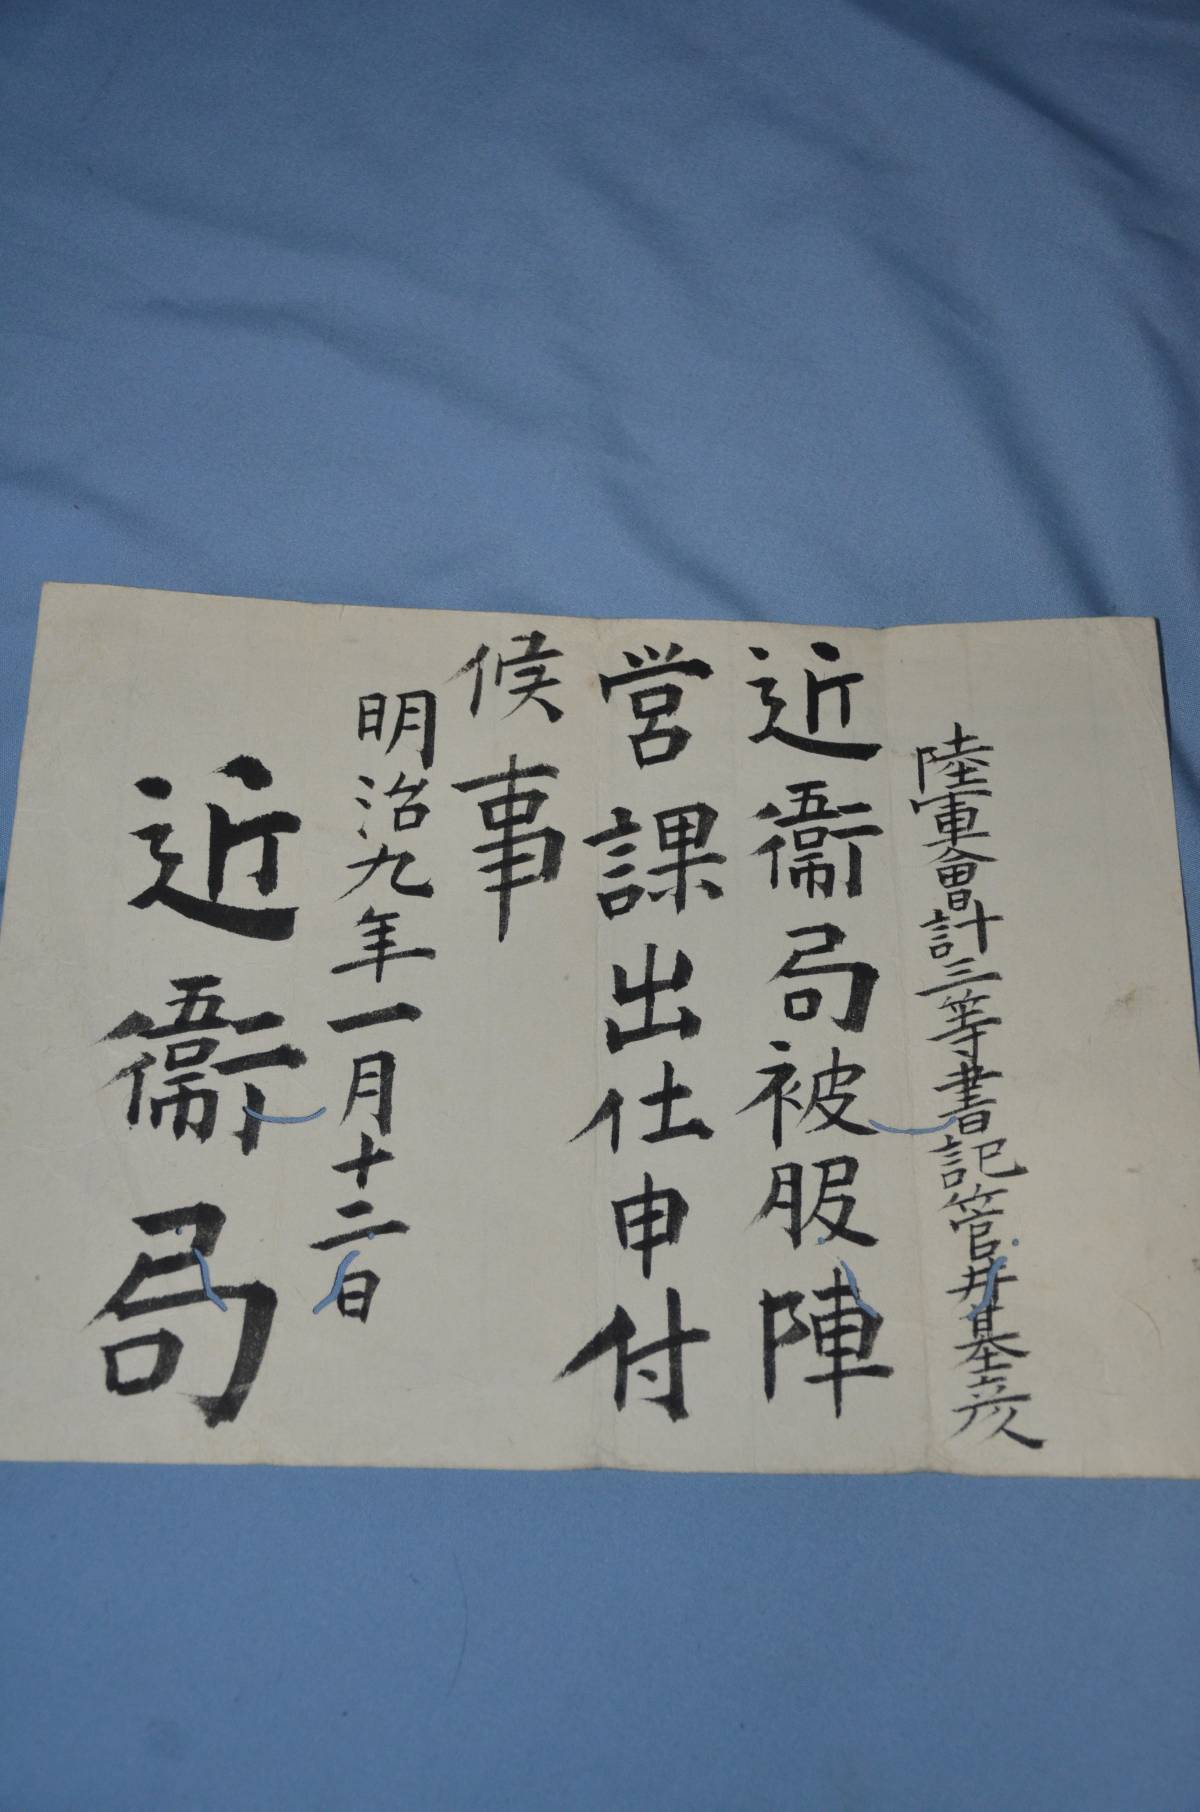 陸軍會計三等書記管井基彦
近衞局被服陣
営課出仕申付
候事
明治九年一月十二日
近衞局